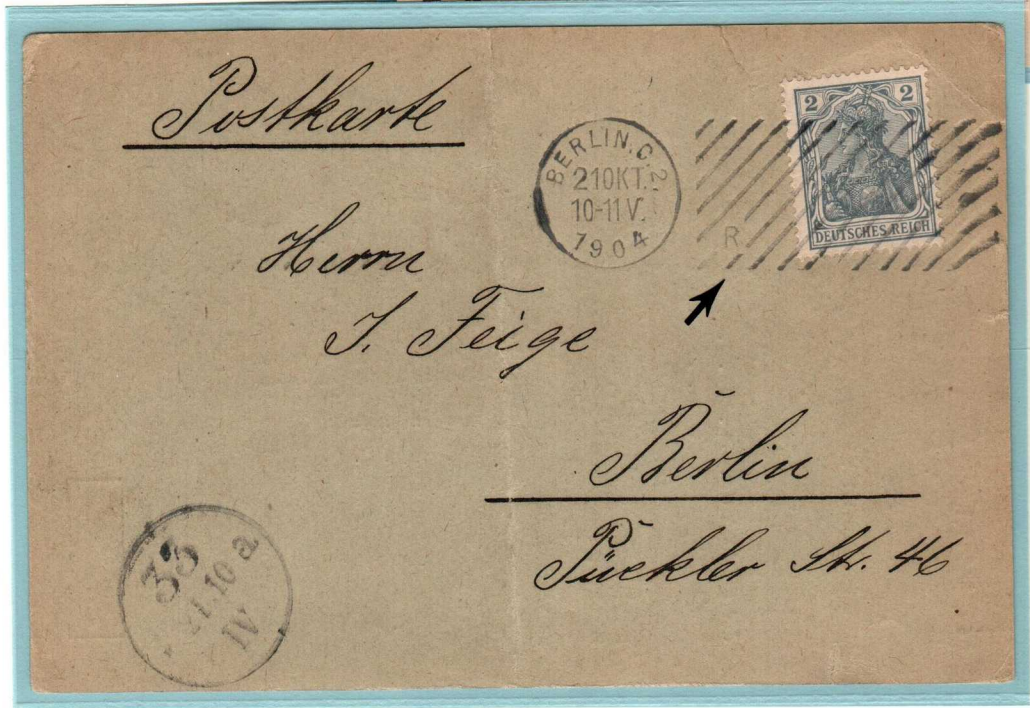 Postkarte
BERLIN. C. 2
21OKT.
10-11V.
1904
R
2 2
DEUTSCHES REICH
Herrn
J. Feige
Berlin
Pückler Str. 46
33 a
21.10
IV